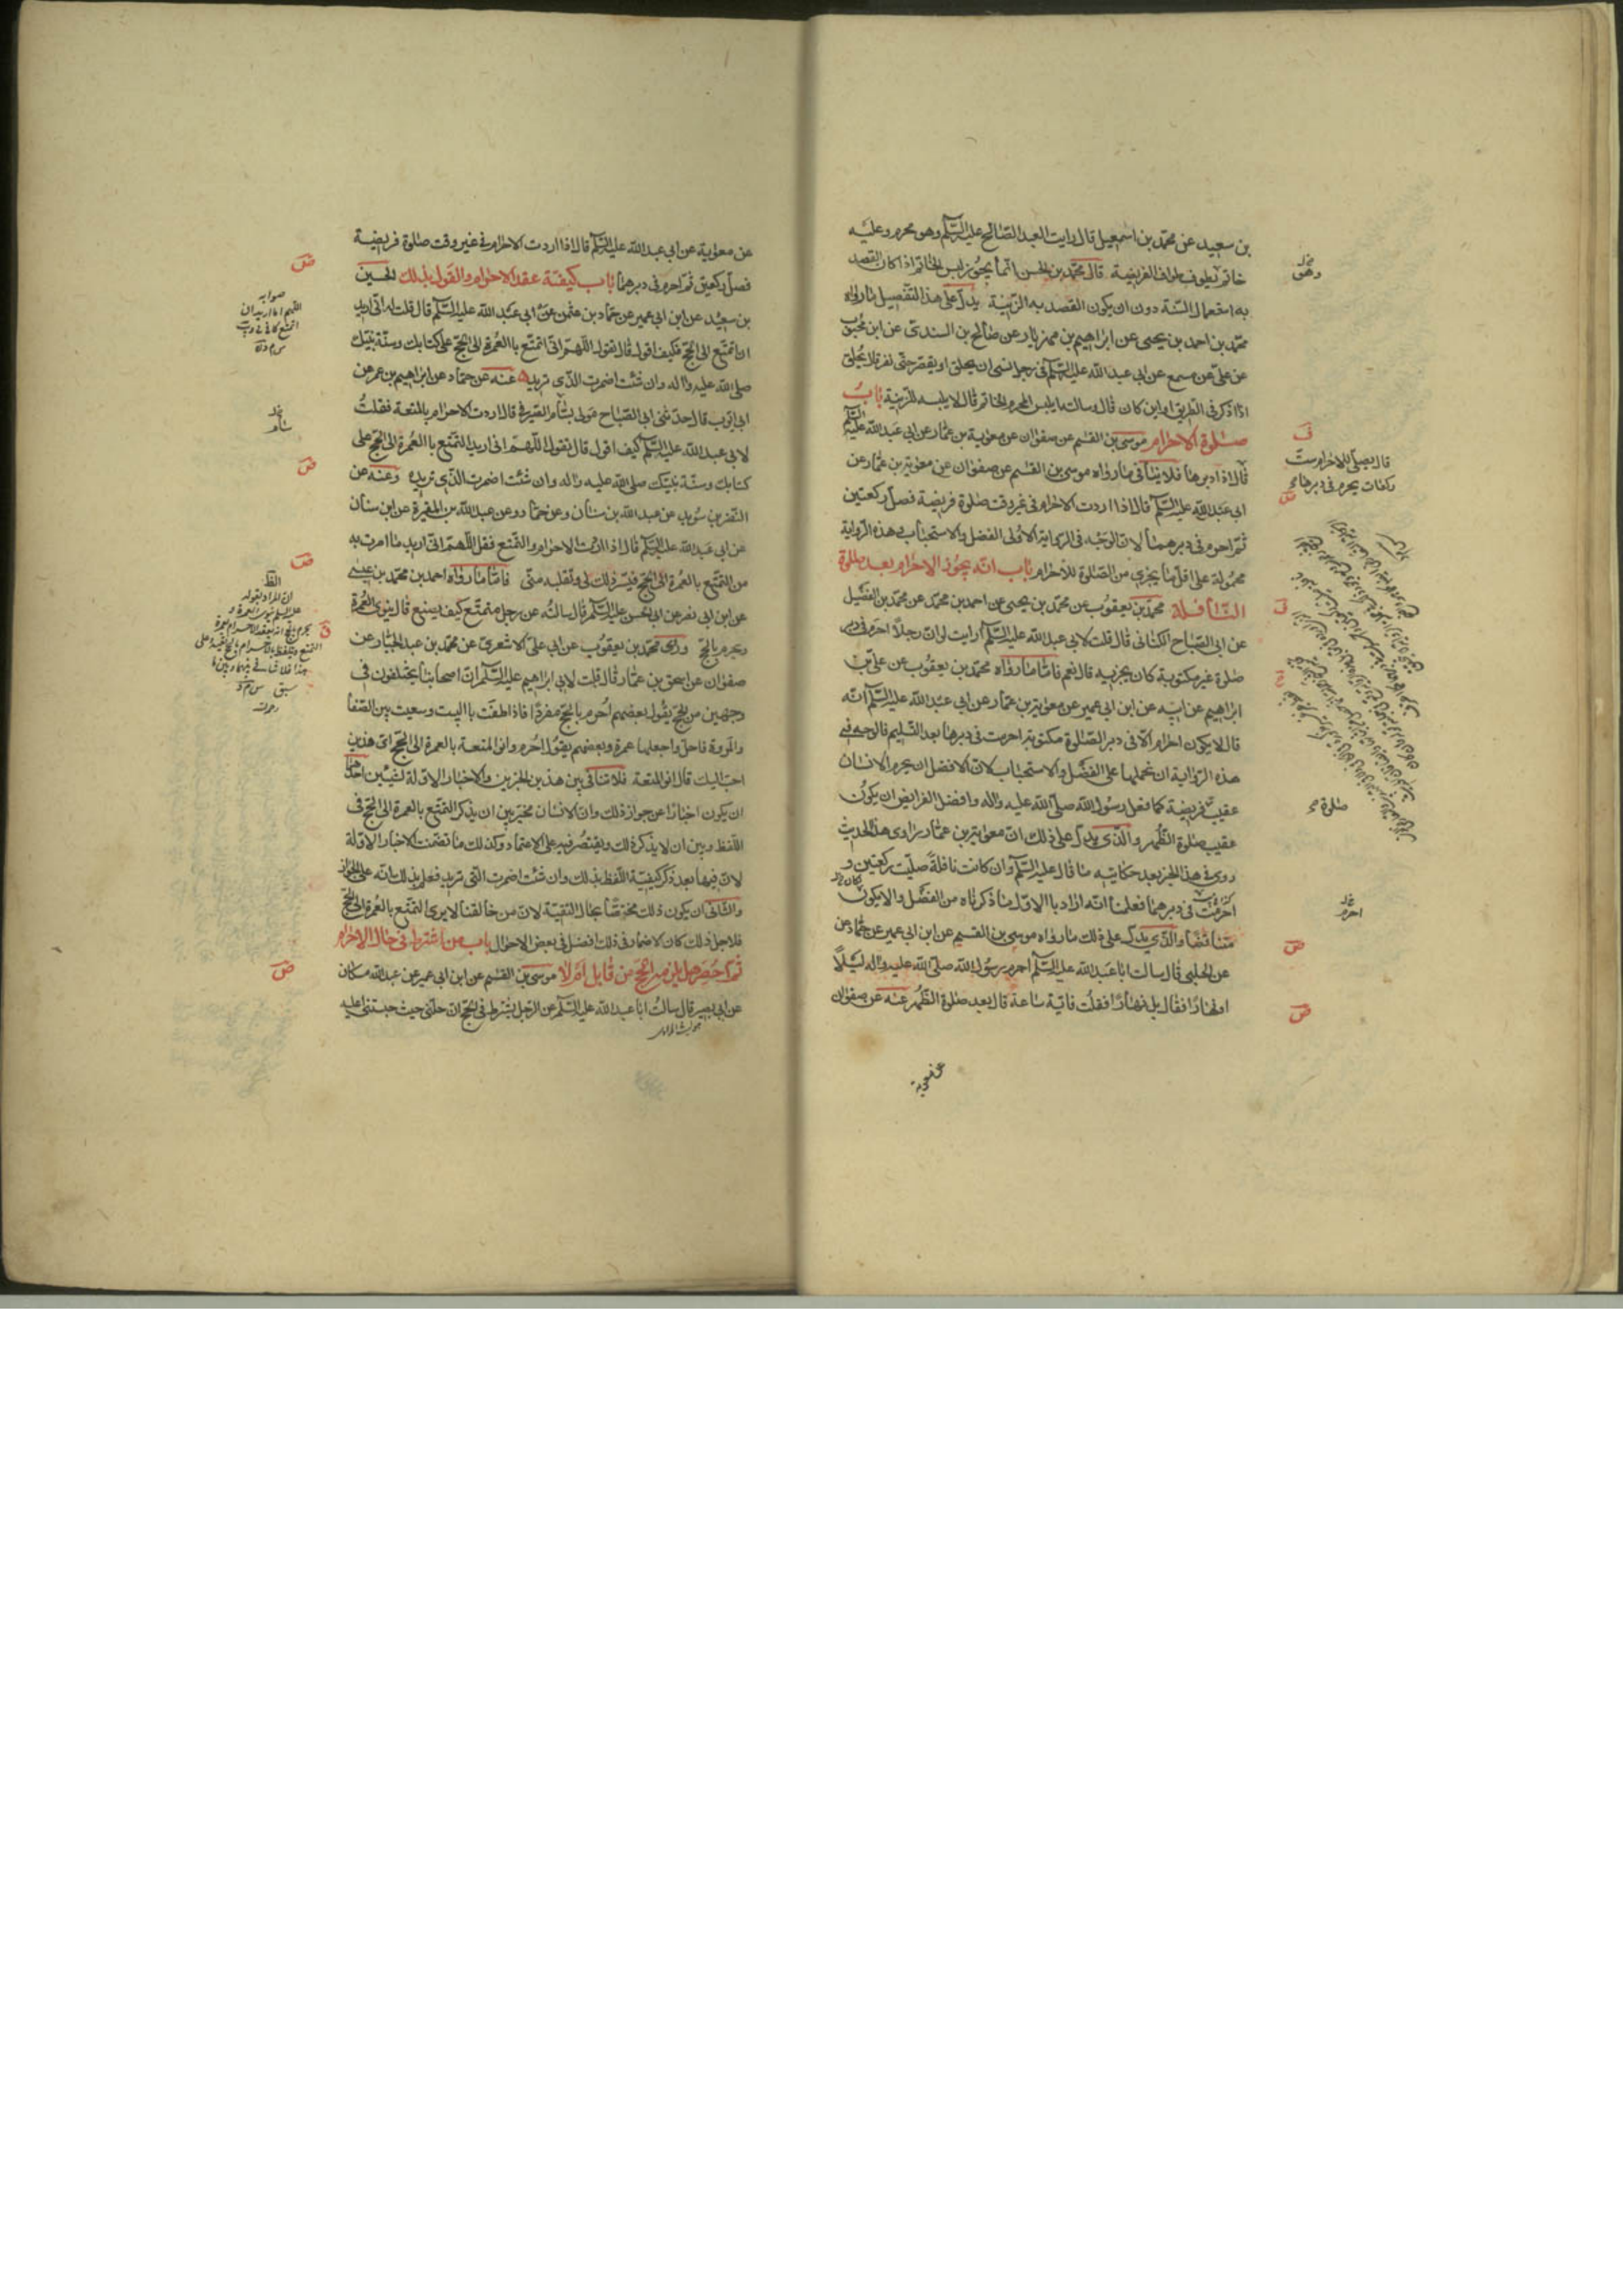 بن سعيد عن محمد بن اسمعيل قال رايت العبد الصالح عليه السلم وهو محرم وعليه
خاتم يطوف طواف الفريضة قال محمد بن الحسن انما يجوز لبس الخاتم اذا كان القصد
به استعمال السنة دون ان يكون القصد به الزينة يدل على هذا التفصيل ما رواه
محمد بن احمد بن يحيى عن ابراهيم بن مهزيار عن صالح بن السندى عن ابن محبوب
عن على عن مسمع عن ابى عبد الله عليه السلم فى رجل نسى ان يحلق او يقصر حتى نفر قال يحلق
اذا ذكر فى الطريق او اين كان قال وسالته ايلبس المحرم الخاتم قال لا يلبسه للزينة باب
صلوة الاحرام موسى بن القسم عن صفوان عن معوية بن عمار عن ابى عبد الله عليه السلم
قال اذا دبرها فلا ينافى ما رواه موسى بن القسم عن صفوان عن معوية بن عمار عن
ابى عبد الله عليه السلم قال اذا اردت الاحرام فى غير وقت صلوة فريضة فصل ركعتين
ثم احرم فى دبرهما لان الوجه فى الرواية الاولى الفضل والاستحباب وهذه الرواية
محمولة على اقل ما يجزى من الصلوة للاحرام باب انه يجوز الاحرام بعد صلوة
النافلة محمد بن يعقوب عن محمد بن يحيى عن احمد بن محمد عن محمد بن الفضيل
عن ابى الصباح الكنانى قال قلت لابى عبد الله عليه السلم ارايت لو ان رجلا احرم فى دبر
صلوة غير مكتوبة كان يجزيه قال نعم فاما ما رواه محمد بن يعقوب عن على بن
ابراهيم عن ابيه عن ابن ابى عمير عن معوية بن عمار عن ابى عبد الله عليه السلم انه
قال لا يكون احرام الا فى دبر الصلوة مكتوبة احرمت فى دبرها بعد التسليم فالوجه فى
هذه الرواية ان نحملها على الفضل والاستحباب لان الافضل ان يحرم الانسان
عقيب فريضة كما فعل رسول الله صلى الله عليه واله وافضل الفرايض ان يكون
عقيب صلوة الظهر والذى يدل على ذلك ان معوية بن عمار راوى هذا الحديث
روى فى هذا الخبر بعد حكايته ما قال عليه السلم وان كانت نافلة صليت ركعتين و
احرمت فى دبرهما فعلمنا انه اراد بالاول ما ذكرناه من الفضل والا لكان يكون
متناقضا والذى يدل على ذلك ما رواه موسى بن القسم عن ابن ابى عمير عن حماد عن
عن الحلبى قال سالت ابا عبد الله عليه السلم احرم رسول الله صلى الله عليه واله ليلا
او نهارا فقال بل نهارا فقلت فاية ساعة قال بعد صلوة الظهر عنه عن صفوان
عن معوية
وهو
قال يصلى للاحرام ست
ركعات يحرم فى دبرها
صلوة
احرم
عن معوية عن ابى عبد الله عليه السلم قال اذا اردت الاحرام فى غير وقت صلوة فريضة
فصل ركعتين ثم احرم فى دبرهما باب كيفية عقد الاحرام والقول بذلك الحسين
بن سعيد عن ابن ابى عمير عن حماد بن عثمن عن ابى عبد الله عليه السلم قال قلت له انى اريد
ان اتمتع الى الحج فكيف اقول قال تقول اللهم انى اتمتع باالعمرة الى الحج على كتابك وسنة نبيك
صلى الله عليه واله وان شئت اضمرت الذى تريده عنه عن حماد عن ابراهيم بن عمر عن
ابى ايوب قال حدثنى ابى الصباح مولى بسام الصيرفى قال اردت الاحرام بالمتعة فقلت
لابى عبد الله عليه السلم كيف اقول قال تقول اللهم انى اريد التمتع باالعمرة الى الحج على
كتابك وسنة نبيك صلى الله عليه واله وان شئت اضمرت الذى تريده وعنه عن
النضر بن سويد عن عبد الله بن سنان وعن حماد وعن عبد الله بن المغيرة عن ابن سنان
عن ابى عبد الله عليه السلم قال اذا اردت الاحرام والتمتع فقل اللهم انى اريد ما امرت به
من التمتع بالعمرة الى الحج فيسر ذلك لى وتقبله منى فاما ما رواه احمد بن محمد بن عيسى
عن ابن ابى نصر عن ابى الحسن عليه السلم قال سالته عن رجل متمتع كيف يصنع قال ينوى العمرة
ويحرم بالحج وروى محمد بن يعقوب عن ابى على الاشعرى عن محمد بن عبد الجبار عن
صفوان عن اسحق بن عمار قال قلت لابى ابراهيم عليه السلم ان اصحابنا يختلفون فى
وجهين من الحج يقول بعضهم احرم بالحج مفردا فاذا طفت باالبيت وسعيت بين الصفا
والمروة فاحل واجعلها عمرة وبعضهم يقول احرم وانو المتعة بالعمرة الى الحج اى هذين
احب اليك قال انو المتعة فلا تنافى بين هذين الخبرين والاخبار الاولة لشيئين احدهما
ان يكون اخبارا عن جواز ذلك وان الانسان مخير بين ان يذكر التمتع بالعمرة الى الحج فى
اللفظ وبين ان لا يذكر ذلك ويقتصر فيه على الاعتماد وكذلك ما تضمنت الاخبار الاولة
لان فيها بعد ذكر كيفية اللفظ بذلك وان شئت اضمرت التى تريد فعلم بذلك انه على الجواز
والثانى ان يكون ذلك مختصا بحال التقية لان من خالفنا لا يرى التمتع بالعمرة الى الحج
فلاجل ذلك كان الاضمار فى ذلك افضل فى بعض الاحوال باب من اشترط فى حال الاحرام
ثم احصر هل يلزمه الحج من قابل ام لا موسى بن القسم عن ابن ابى عمير عن عبد الله مسكان
عن ابى بصير قال سالت ابا عبد الله عليه السلم عن الرجل يشترط فى الحج ان حلنى حيث حبستنى عليه
صوابه
اللهم انى اريد ان
اتمتع
بسام
الظ
ان المراد بقوله
عليه السلم ينوى العمرة و
يحرم بالحج انه يعقد الاحرام بعمرة